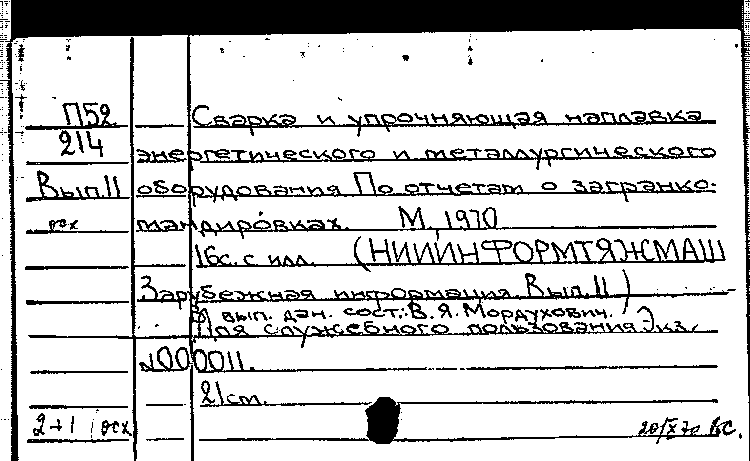 П52 Сварка и упрочняющая наплавка
214 энергетического и металлургического
Вып.11 оборудования По отчетам о загранко-
рсх мандировках. М., 1970
16с. с илл. (НИИИНФОРМТЯЖМАШ
Зарубежная информация. Вып.11)
В вып. дан. сост.: В.Я. Мордухович.
Для служебного пользования Экз.
N000011.
21 см.
2+1 рсх 20/X 70 ВС.